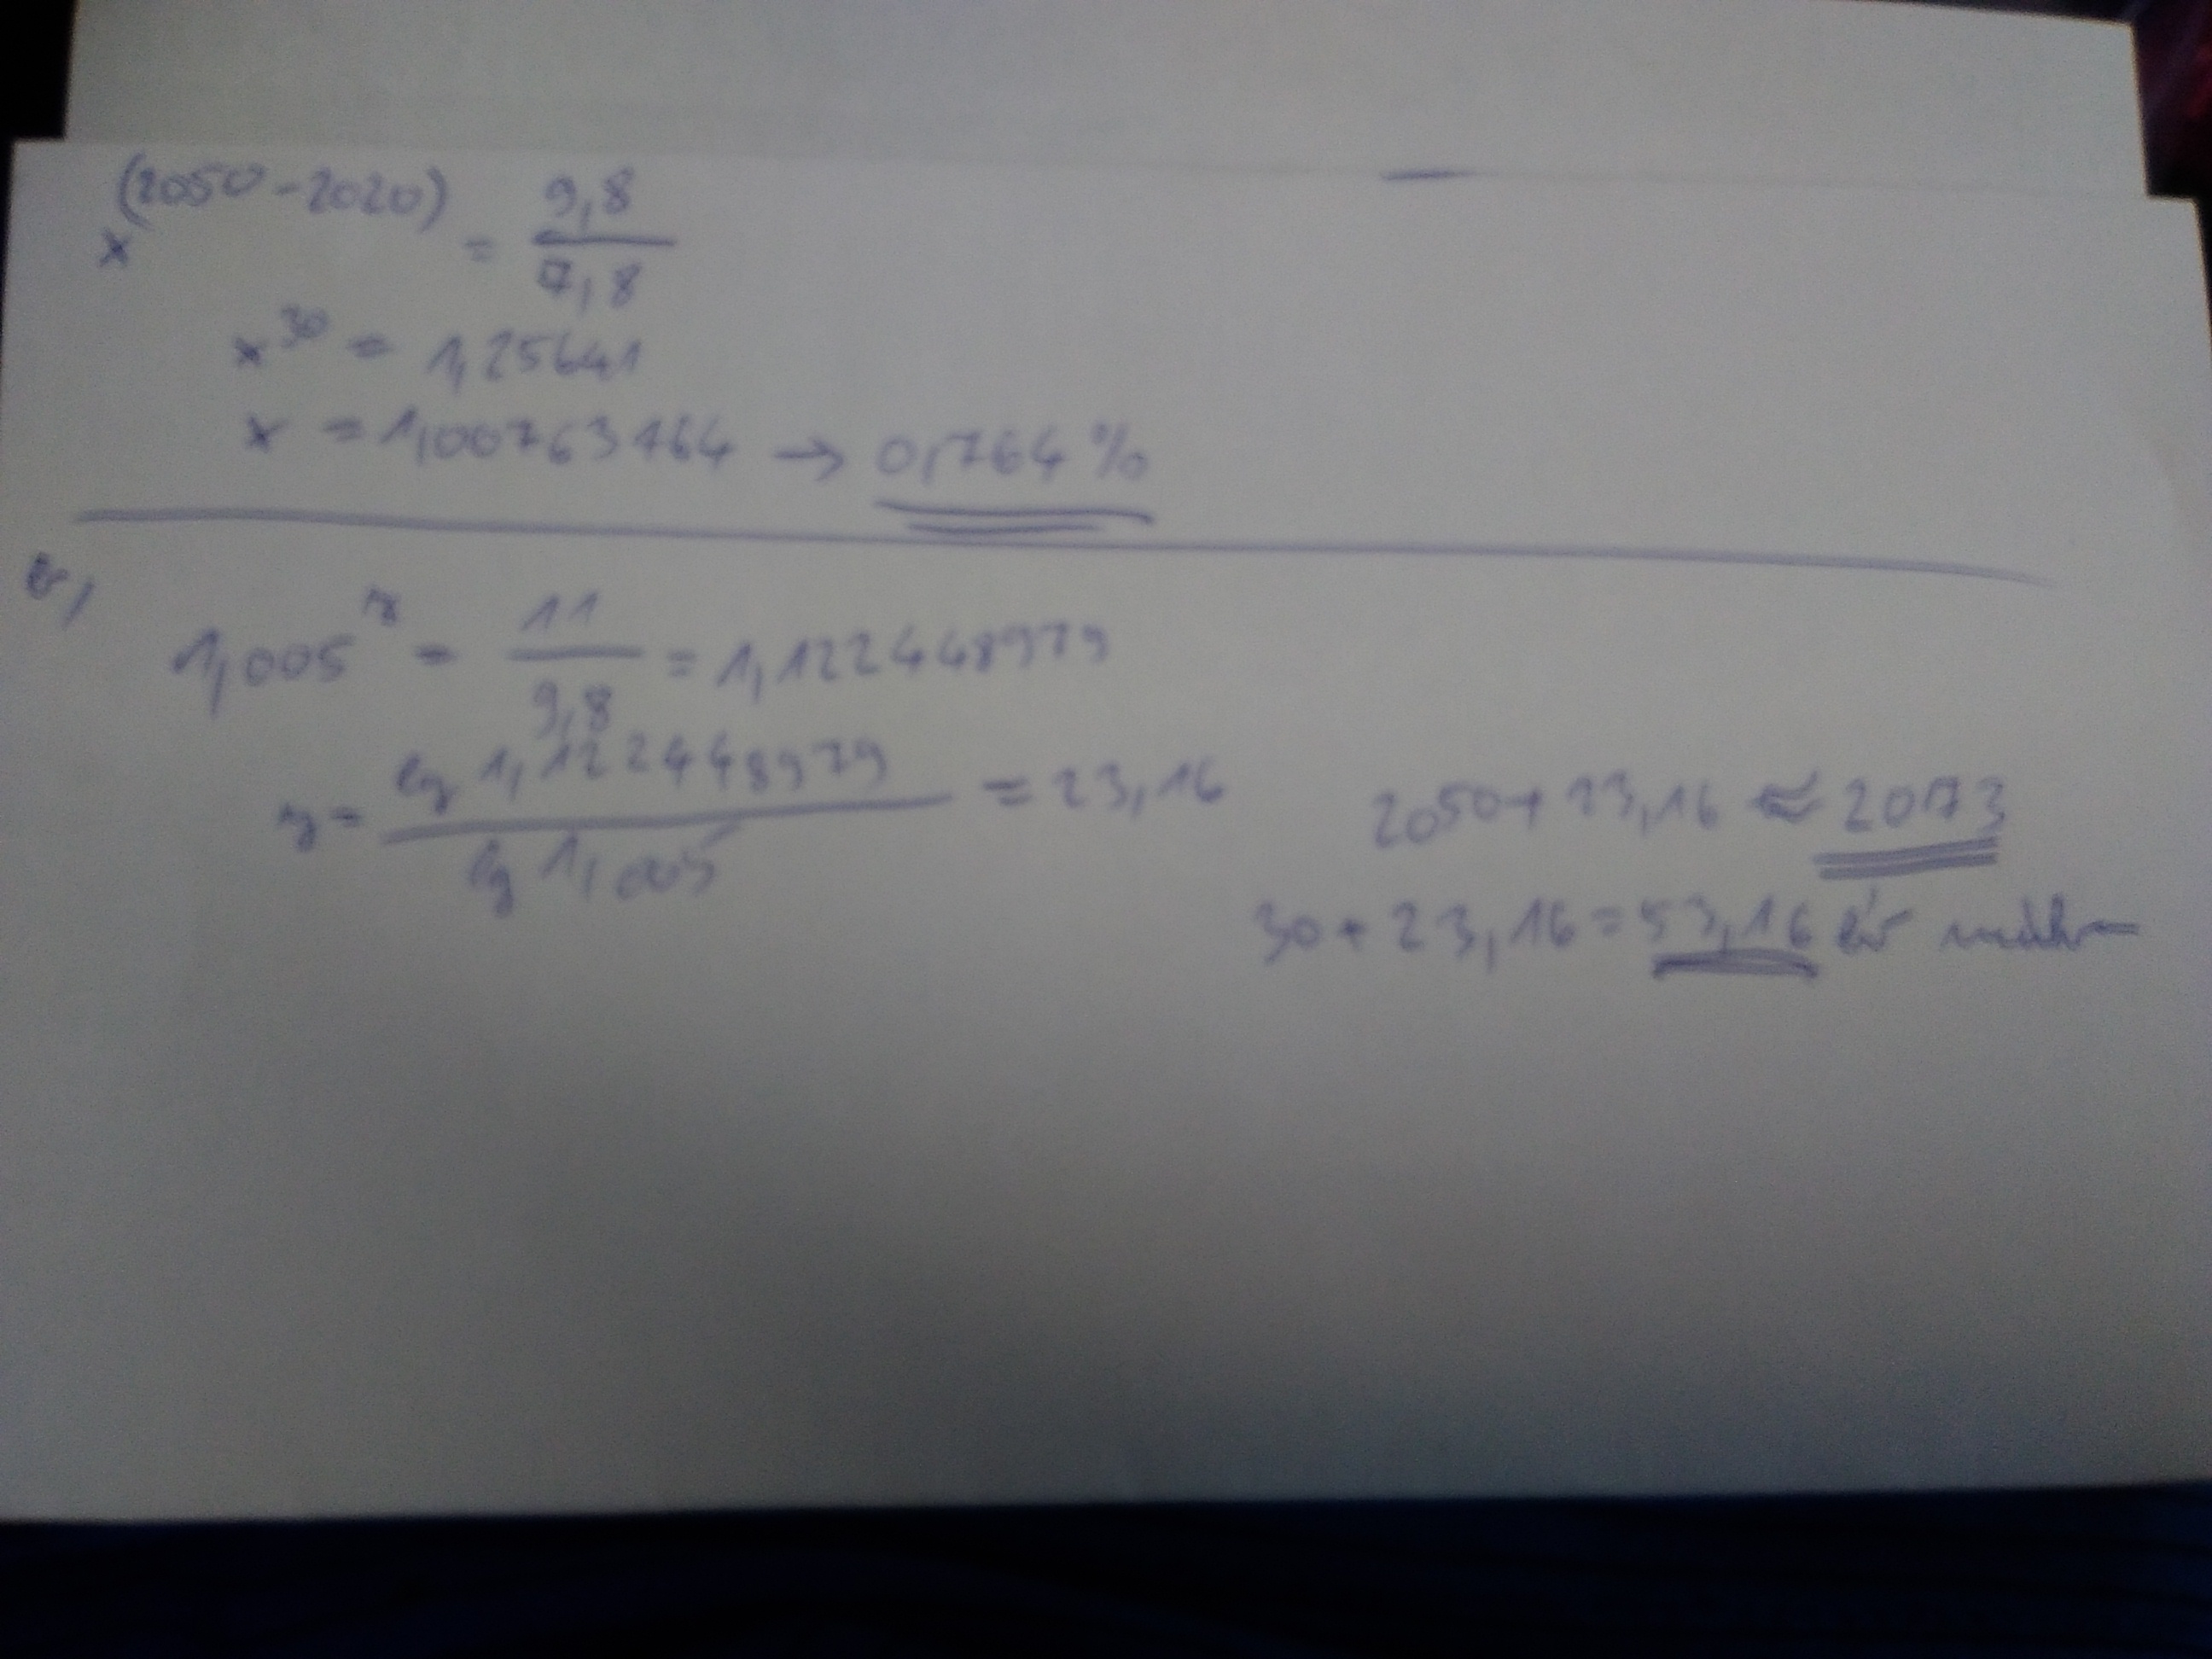 x^(2050-2020) = 9,8/7,8
x^30 = 1,25641
x = 1,00763464 → 0,764 %
b,
1,005^y = 11/9,8 = 1,122448979
y = lg 1,122448979 / lg 1,005 = 23,16
2050 + 23,16 ≈ 2073
30 + 23,16 = 53,16 év múlva